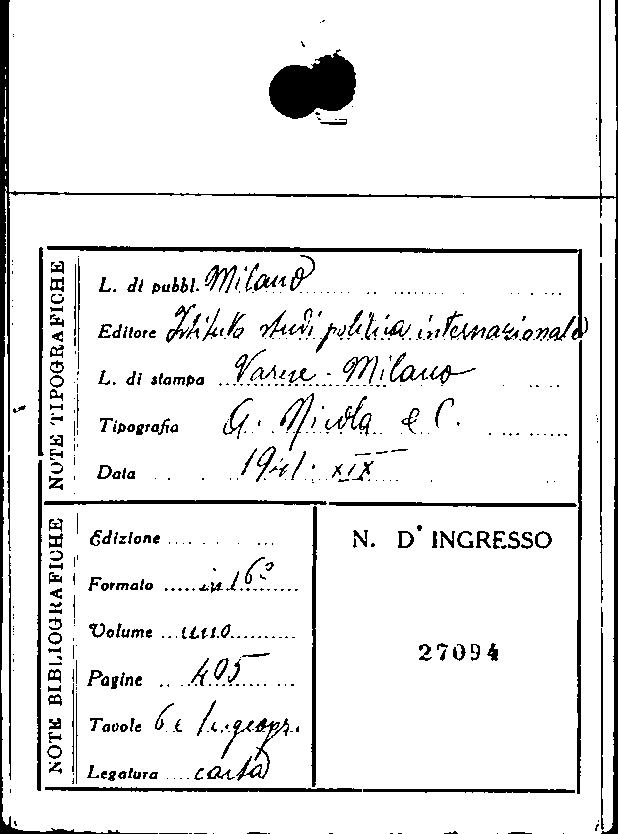 NOTE TIPOGRAFICHE
L. di pubbl. Milano
Editore Istituto studi politica internazionale
L. di stampa Varese - Milano
Tipografia A. Nicola & C.
Data 1941. XIX
NOTE BIBLIOGRAFICHE
Edizione
Formato in 16º
Volume uno
Pagine 405
Tavole 6 c. geogr.
Legatura carta
N. D' INGRESSO
27094